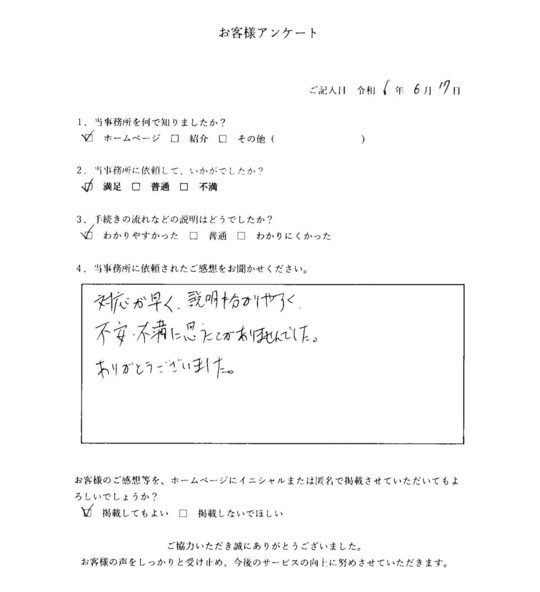 お客様アンケート
ご記入日 令和 6 年 6 月 17 日
1. 当事務所を何で知りましたか?
☑ ホームページ □ 紹介 □ その他 ( )
2. 当事務所に依頼して、いかがでしたか?
☑ 満足 □ 普通 □ 不満
3. 手続きの流れなどの説明はどうでしたか?
☑ わかりやすかった □ 普通 □ わかりにくかった
4. 当事務所に依頼されたご感想をお聞かせください。
対応が早く、説明も分かりやすく、
不安・不満に思うことがありませんでした。
ありがとうございました。
お客様のご感想等を、ホームページにイニシャルまたは匿名で掲載させていただいてもよ
ろしいでしょうか?
☑ 掲載してもよい □ 掲載しないでほしい
ご協力いただき誠にありがとうございました。
お客様の声をしっかりと受け止め、今後のサービスの向上に努めさせていただきます。